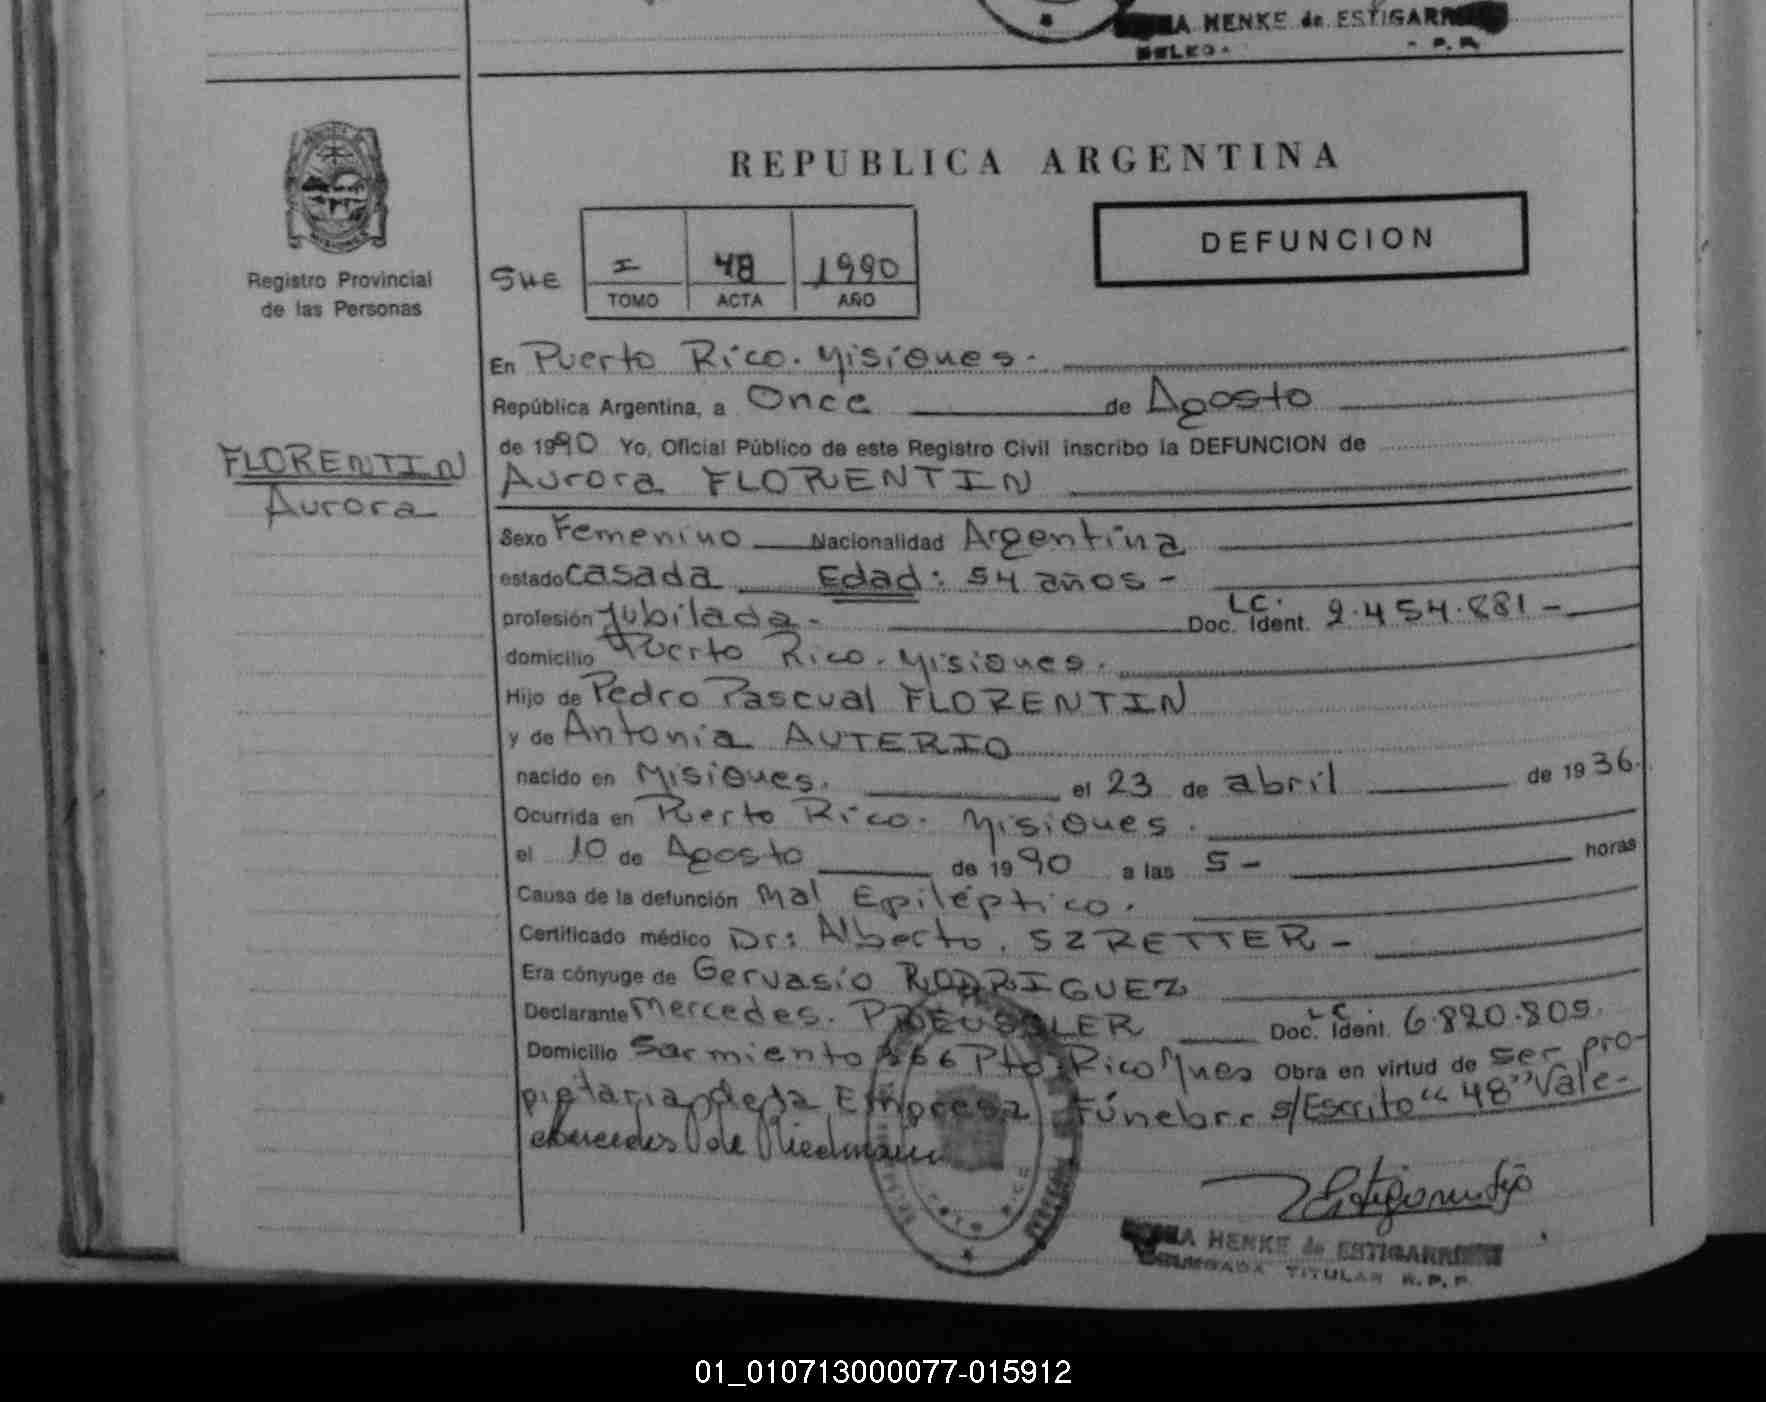 HENKE de ESTIGARR
REPUBLICA ARGENTINA
DEFUNCION
Registro Provincial
de las Personas
I 48 1990
TOMO ACTA AÑO
En Puerto Rico. Misiones.
República Argentina, a Once de Agosto
de 1990 Yo, Oficial Público de este Registro Civil inscribo la DEFUNCION de
FLORENTIN
Aurora
Aurora FLORENTIN
Sexo Femenino Nacionalidad Argentina
estado casada Edad: 54 años -
profesión Jubilada. Doc. Ident. LC. 2.454.881 -
domicilio Puerto Rico. Misiones.
Hijo de Pedro Pascual FLORENTIN
y de Antonia AUTERIO
nacido en Misiones. el 23 de abril de 1936.
Ocurrida en Puerto Rico. Misiones.
el 10 de Agosto de 1990 a las 5 - horas
Causa de la defunción Mal Epiléptico.
Certificado médico Dr: Alberto. SZRETTER -
Era cónyuge de Gervasio RODRIGUEZ
Declarante Mercedes. PREUSSLER Doc. Ident. LC. 6.820.805.
Domicilio Sarmiento Pto. Rico Mnes Obra en virtud de ser pro-
pietaria de la Empresa Fúnebre s/Escrito "48" Vale-
de Riedmann
HENKE de ESTIGARRIBIA
DELEGADA TITULAR R.P.P.
01_010713000077-015912